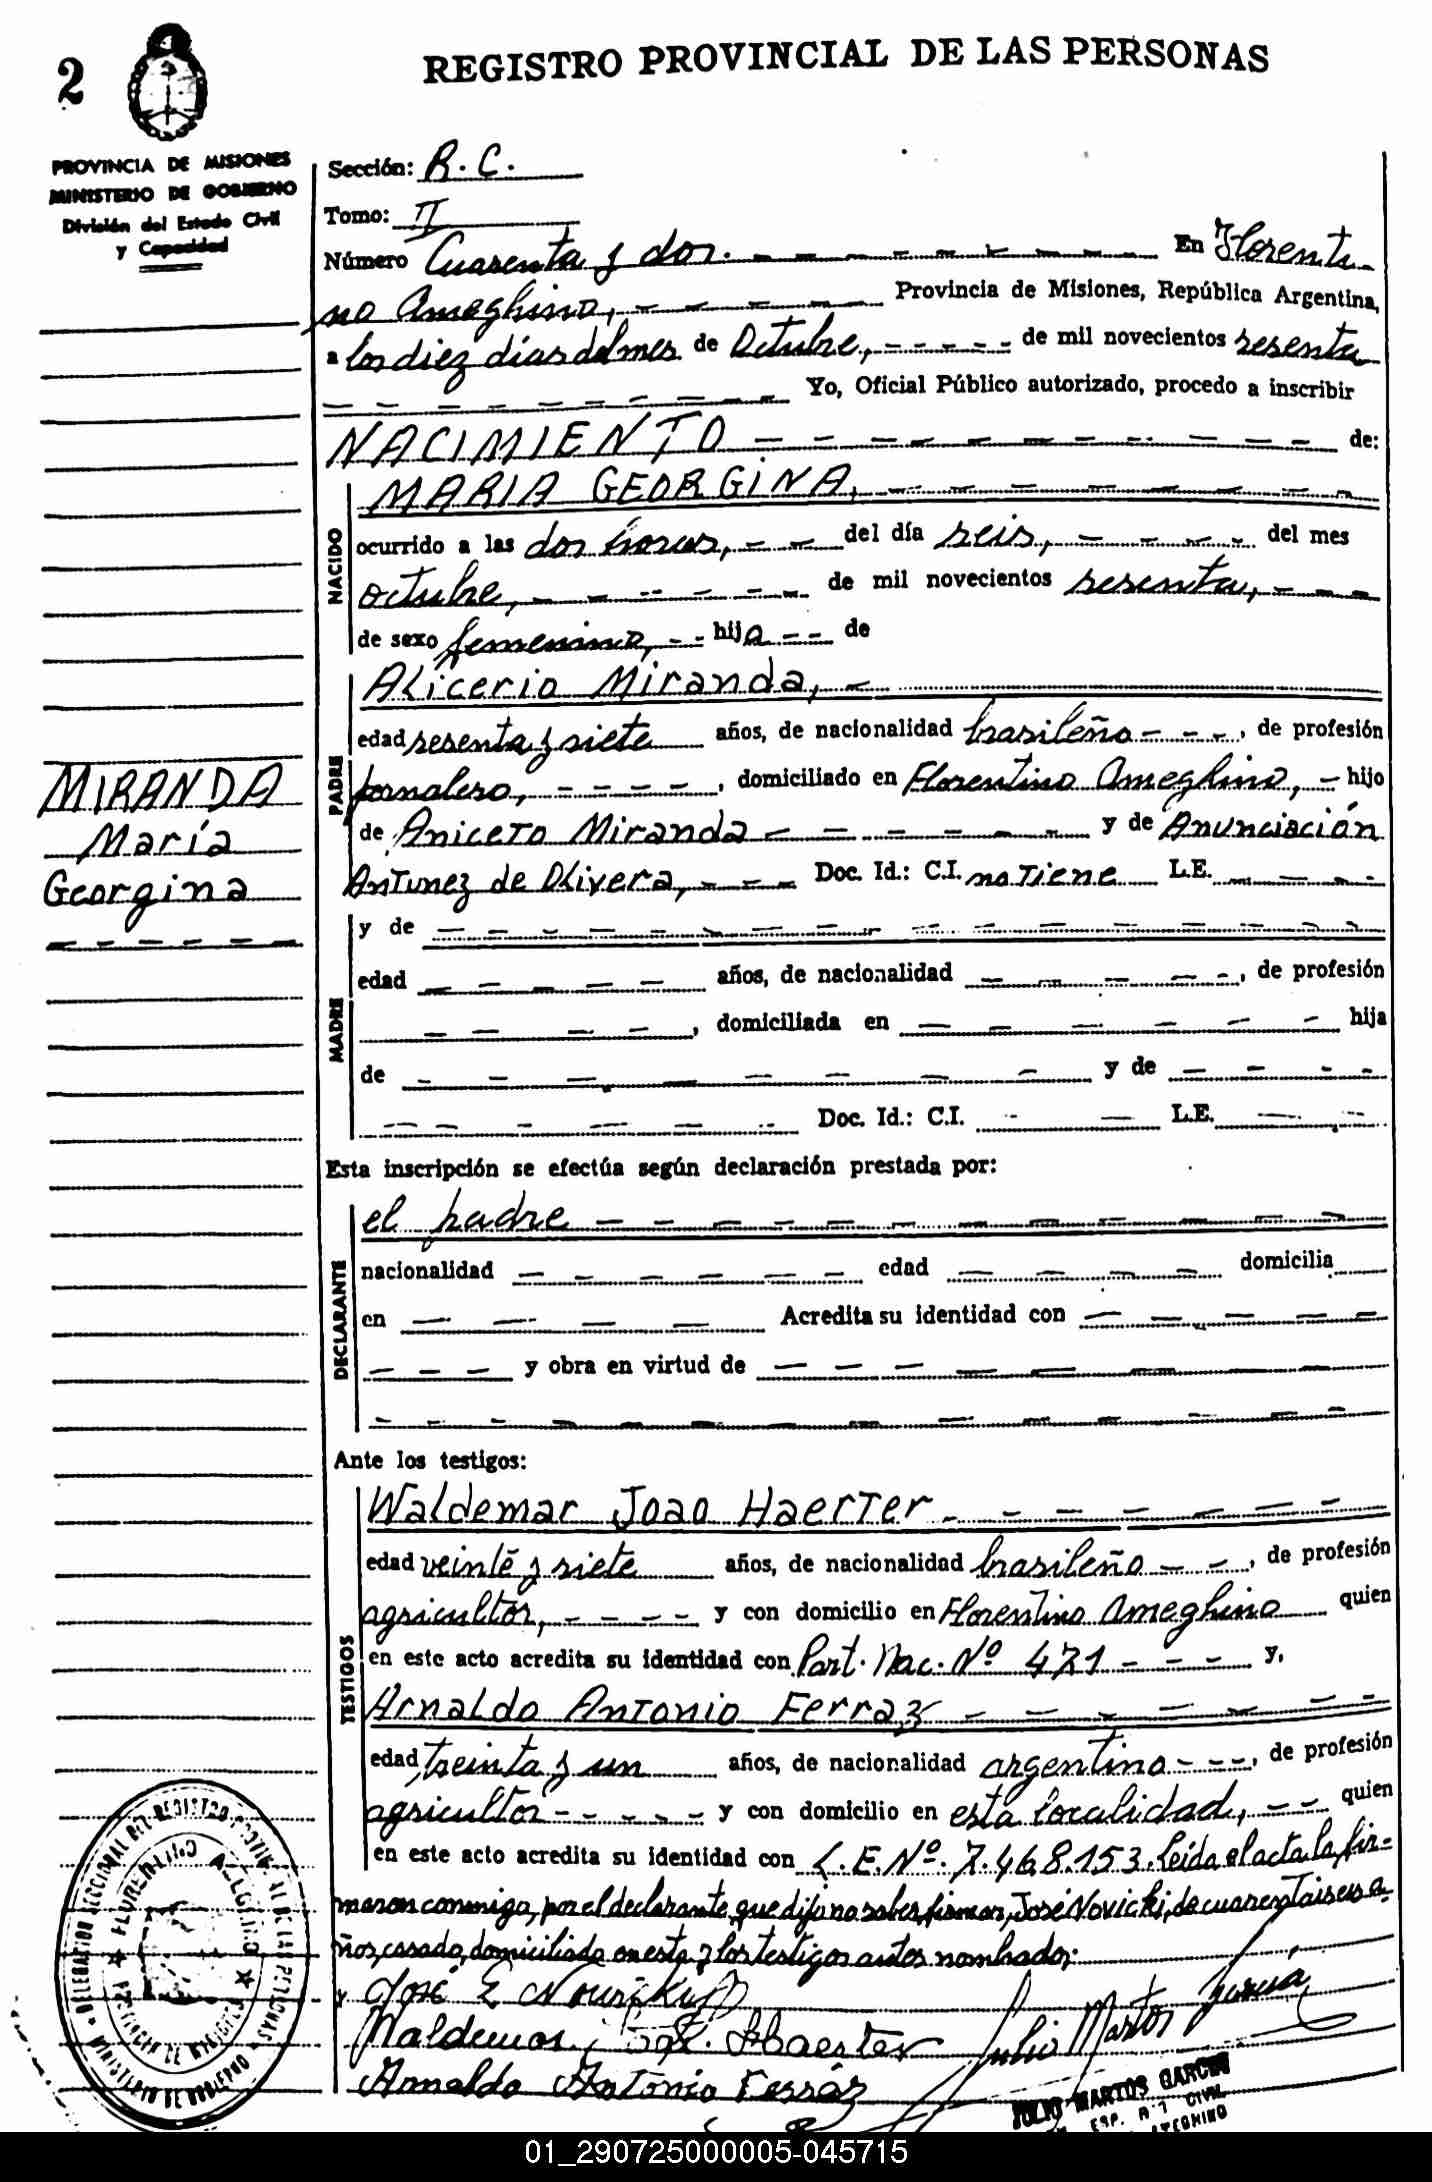 2
REGISTRO PROVINCIAL DE LAS PERSONAS
PROVINCIA DE MISIONES
MINISTERIO DE GOBIERNO
División del Estado Civil
y Capacidad
Sección: R. C.
Tomo: II
Número Cuarenta y dos. En Florenti-
no Ameghino, Provincia de Misiones, República Argentina,
a los diez días del mes de Octubre, de mil novecientos sesenta
Yo, Oficial Público autorizado, procedo a inscribir
NACIMIENTO de:
NACIDO
MARIA GEORGINA,
ocurrido a las dos horas, del día seis, del mes
octubre, de mil novecientos sesenta,
de sexo femenino, hija de
PADRE
Alicerio Miranda,
edad sesenta y siete años, de nacionalidad brasileño, de profesión
jornalero, domiciliado en Florentino Ameghino, hijo
de Aniceto Miranda y de Anunciación
Antunez de Olivera, Doc. Id.: C.I. no tiene L.E.
MIRANDA
María
Georgina
MADRE
y de
edad años, de nacionalidad , de profesión
, domiciliada en hija
de y de
Doc. Id.: C.I. L.E.
Esta inscripción se efectúa según declaración prestada por:
DECLARANTE
el padre
nacionalidad edad domicilia
en Acredita su identidad con
y obra en virtud de
Ante los testigos:
TESTIGOS
Waldemar Joao Haerter.
edad veinte y siete años, de nacionalidad brasileño, de profesión
agricultor, y con domicilio en Florentino Ameghino quien
en este acto acredita su identidad con Part. Nac. Nº 471 y,
Arnaldo Antonio Ferraz
edad treinta y un años, de nacionalidad argentino, de profesión
agricultor y con domicilio en esta localidad, quien
en este acto acredita su identidad con L.E. Nº. 7.468.153. Leída el acta la fir-
maron conmigo, por el declarante, que dijo no saber firmar, José Novicki, de cuarenta i seis a-
ños, casado, domiciliado en esta y los testigos antes nombrados;
José E Novicki
Waldemar Haerter
Julio Martos Garcia
Arnaldo Antonio Ferraz
JULIO MARTOS GARCIA
CIVIL
DELEGACION SECCIONAL DEL REGISTRO PROVINCIAL DE LAS PERSONAS
MINISTERIO DE GOBIERNO
FLORENTINO AMEGHINO
PROVINCIA DE MISIONES
01_290725000005-045715